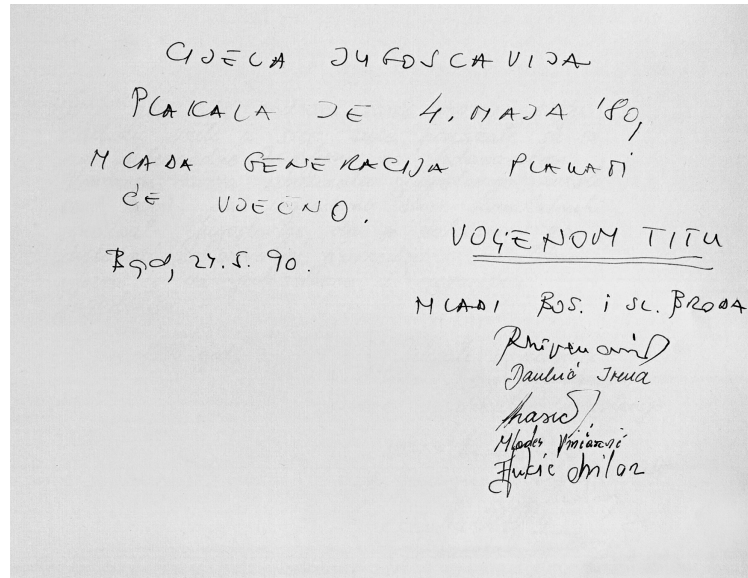 CIJELA JUGOSLAVIJA
PLAKALA JE 4. MAJA '80,
MLADA GENERACIJA PLAKATI
ĆE VJEČNO.
VOLJENOM TITU
Bgd, 24.5.90.
MLADI BOS. i SL. BRODA
Irena
Mladen
Jukić Milan